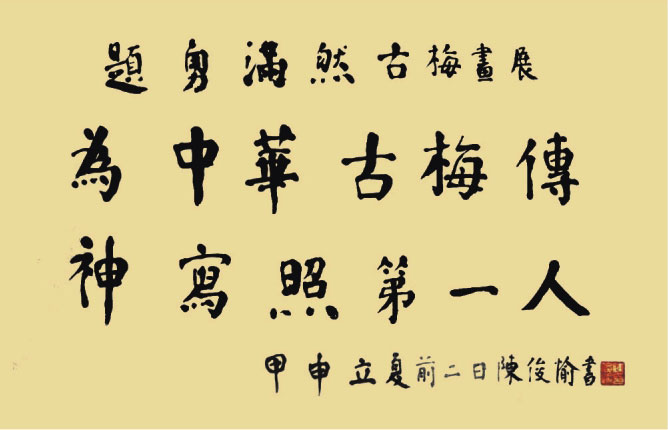 題滿然古梅畫展
為中華古梅傳
神寫照第一人
甲申立夏前二日陳俊愉書